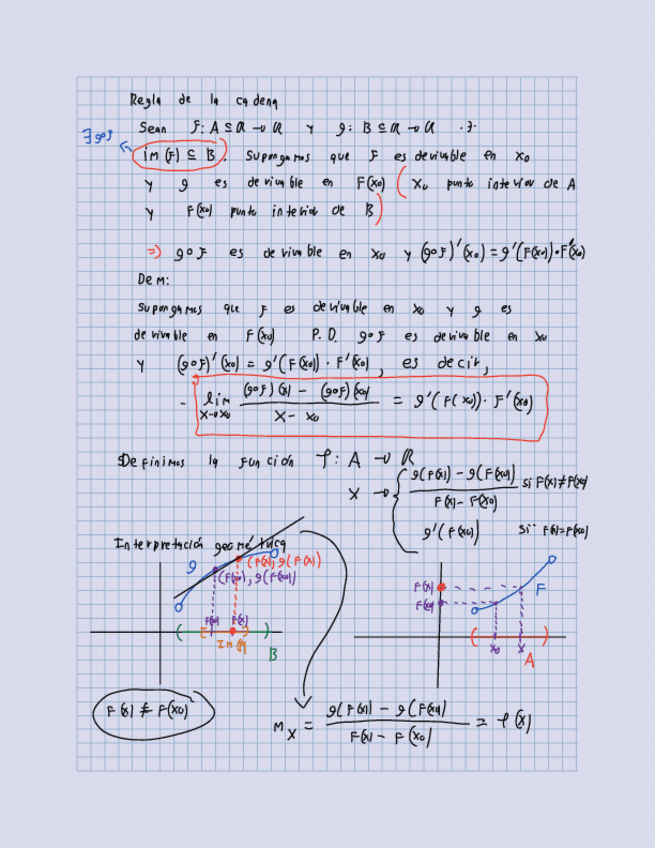 Regla de la cadena
Sean f: A ⊆ R → R y g: B ⊆ R → R .∋.
∃ g∘f
Im(f) ⊆ B. Supongamos que f es derivable en x₀
y g es derivable en f(x₀) (x₀ punto interior de A
y f(x₀) punto interior de B)
⇒) g∘f es derivable en x₀ y (g∘f)'(x₀) = g'(f(x₀))·f'(x₀)
Dem:
Supongamos que f es derivable en x₀ y g es
derivable en f(x₀) P.D. g∘f es derivable en x₀
y (g∘f)'(x₀) = g'(f(x₀)) · f'(x₀), es decir,
- lim x→x₀ (g∘f)(x) - (g∘f)(x₀) / x - x₀ = g'(f(x₀)) · f'(x₀)
Definimos la función φ: A → R
x → { g(f(x)) - g(f(x₀)) / f(x) - f(x₀) si f(x) ≠ f(x₀)
g'(f(x₀)) si f(x) = f(x₀)
Interpretación geométrica
g
(f(x), g(f(x))
(f(x₀), g(f(x₀))
f(x₀) f(x)
Im(f)
B
f(x)
f(x₀)
f
x₀ x
A
f(x) ≠ f(x₀)
mₓ = g(f(x)) - g(f(x₀)) / f(x) - f(x₀) = φ(x)